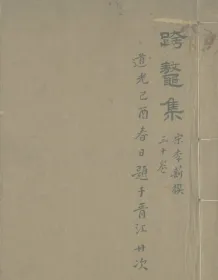 跨鼇集
宋李新撰
三十卷
道光己酉春日題于晋江舟次